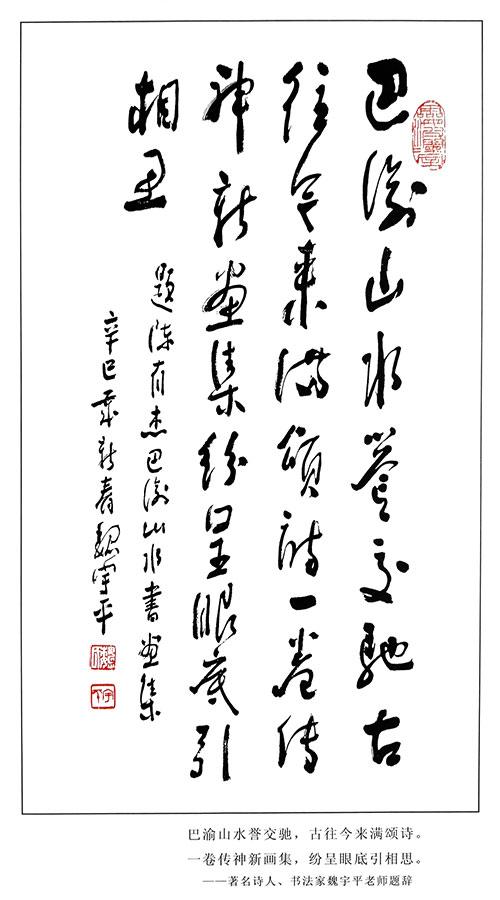 巴渝山水誉交馳古
往今来满頌詩一卷傳
神新畫集紛呈眼底引
相思
題陳有杰巴渝山水書畫集
辛巳歲新春魏宇平
巴渝山水誉交驰，古往今来满颂诗。
一卷传神新画集，纷呈眼底引相思。
——著名诗人、书法家魏宇平老师题辞